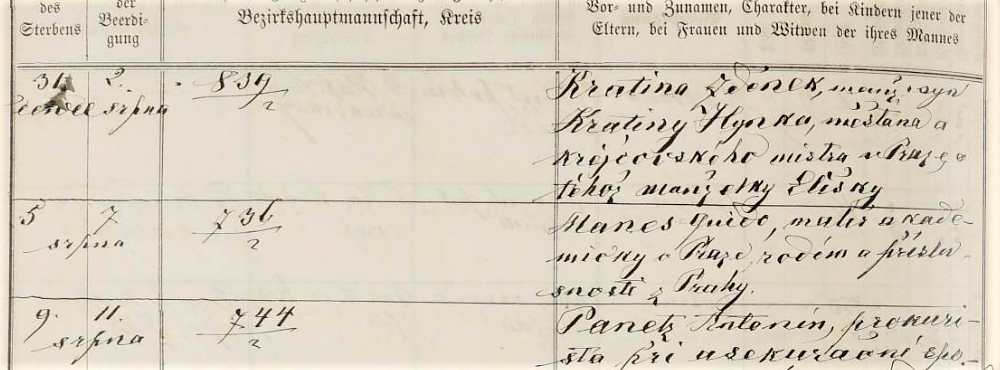 des
Sterbens
der
Beerdi-
gung
Bezirkshauptmannschaft, Kreis
Vor- und Zunamen, Charakter, bei Kindern jener der
Eltern, bei Frauen und Witwen der ihres Mannes
31. 2. 839/2 Kratina Zdeněk, manž. syn
srpna Kratiny Hynka, měšťana a
krejčovského mistra v Praze a
téhož manželky Elišky
5 7 736/2 Manes Guido, malíř akade-
srpna mický v Praze, rodem a příslu-
snosti z Prahy.
9. 11. 744/2 Panek Antonín, prokuri-
srpna sta při asekurační spo-